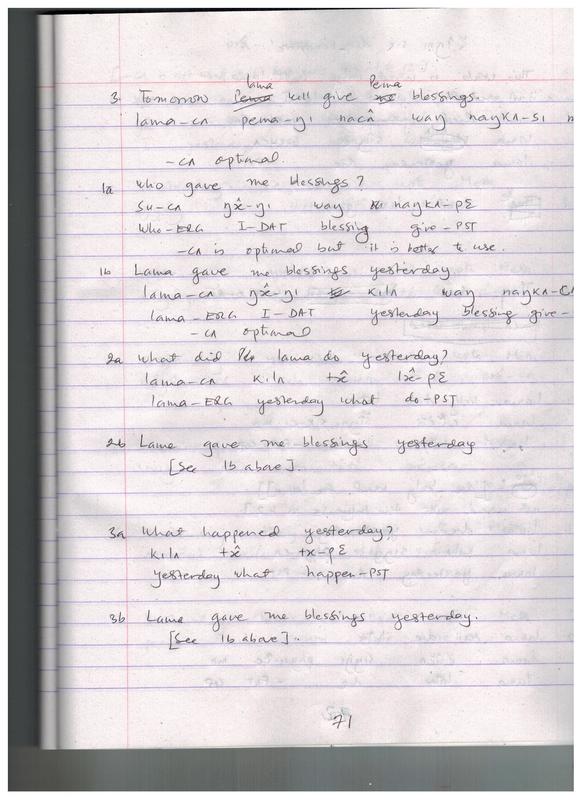 3. Tomorrow lama will give Pema blessings.
lama-cʌ pema-ŋi nacʌ̂ waŋ naŋkʌ-si
-cʌ optional.
1a who gave me blessings?
su-cʌ ŋə̂-ŋi waŋ naŋkʌ-pɛ
who-ERG I-DAT blessing give-PST
-cʌ is optional but it is better to use.
1b Lama gave me blessings yesterday
lama-cʌ ŋə̂-ŋi kilʌ waŋ naŋkʌ-
lama-ERG I-DAT yesterday blessing give-
-cʌ optional
2a what did lama do yesterday?
lama-cʌ kilʌ tə̂ lə̂-pɛ
lama-ERG yesterday what do-PST
2b Lama gave me blessings yesterday
[See 1b above].
3a what happened yesterday?
kilʌ tə̂ tə-pɛ
yesterday what happen-PST
3b Lama gave me blessings yesterday.
[See 1b above].
71